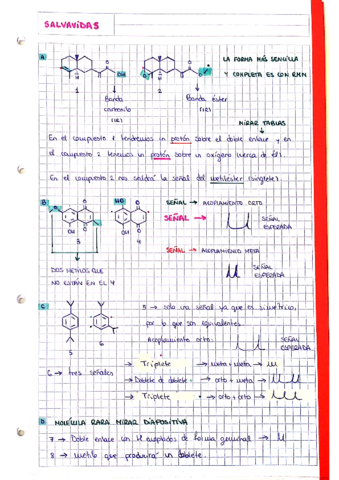 SALVAVIDAS
A
LA FORMA MÁS SENCILLA
Y COMPLETA ES CON RMN
OH
1
2
Banda
carbonilo
(IR)
Banda éster
(IR)
MIRAR TABLAS
En el compuesto 1 tendremos un protón sobre el doble enlace y en
el compuesto 2 tenemos un protón sobre un oxígeno (cerca de él).
En el compuesto 2 nos saldrá la señal del metiléster (singlete).
B
HO
SEÑAL → ACOPLAMIENTO ORTO
SEÑAL →
SEÑAL
ESPERADA
OH
OH
3
4
SEÑAL → ACOPLAMIENTO META
SEÑAL
ESPERADA
DOS METILOS QUE
NO ESTÁN EN EL 4
C
5 → solo una señal ya que es simétrico,
por lo que son equivalentes.
Acoplamiento orto:
SEÑAL
ESPERADA
5
6
6 → tres señales
→ Triplete → meta + meta →
→ Doblete de doblete → orto + meta →
→ Triplete → orto + orto →
D MOLÉCULA RARA MIRAR DIAPOSITIVA
7 → Doble enlace con H acoplados de forma geminal →
8 → metilo que producirá un doblete.